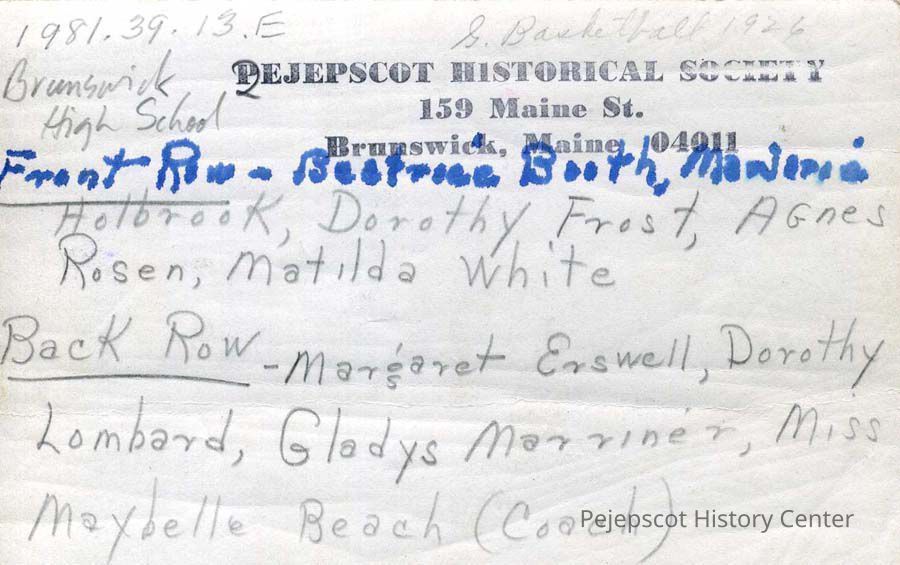 1981.39.13.E
G. Basketball 1926
Brunswick
High School
PEJEPSCOT HISTORICAL SOCIETY
159 Maine St.
Brunswick, Maine 04011
Front Row - Beatrice Booth, Marjorie
Holbrook, Dorothy Frost, Agnes
Rosen, Matilda White
Back Row - Margaret Erswell, Dorothy
Lombard, Gladys Marriner, Miss
Maybelle Beach (Coach)
Pejepscot History Center